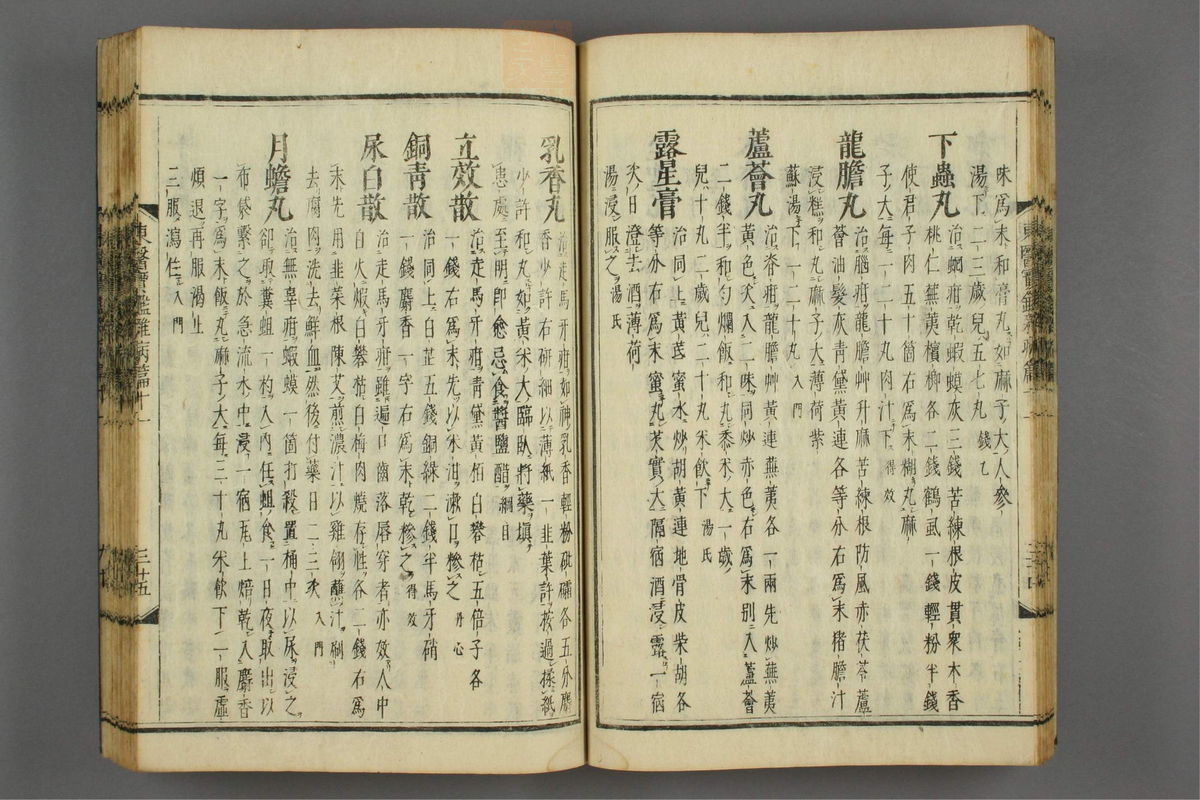 味爲末和膏丸如麻子大人參
湯下二三歲兒五七丸 錢乙
下蟲丸 治蛔疳乾蝦蟆灰三錢苦練根皮貫衆木香
桃仁蕪荑檳榔各二錢鶴虱一錢輕粉半錢
使君子肉五十箇右爲末糊丸麻
子大每一二十丸肉汁下 得效
龍膽丸 治腦疳龍膽艸升麻苦練根防風赤茯苓蘆
薈油髮灰靑黛黃連各等分右爲末猪膽汁
浸糕和丸麻子大薄荷紫
蘇湯下二十丸 入門
蘆薈丸 治脊疳龍膽艸黃連蕪荑各一兩先炒蕪荑
黃色次入二味同炒赤色右爲末別入蘆薈
二錢半和勻爛飯和丸黍米大一歲
兒十丸二歲兒二十丸米飮下 湯氏
露星膏 治同上黃芪蜜水炒胡黃連地骨皮柴胡各
等分右爲末蜜丸芡實大隔宿酒浸露一宿
次日澄去酒薄荷
湯浸服之 湯氏
東醫寶鑑雜病篇十一
乳香丸 治走馬牙疳如神乳香輕粉砒礵各五分麝
香少許右研細以薄紙一韭葉許按過揉紙
少許和丸如黃米大臨臥將藥塡
患處至明卽愈忌食醬鹽醋 綱目
立效散 治走馬牙疳靑黛黃栢白礬枯五倍子各
一錢右爲末先以米泔漱口糝之 丹心
銅靑散 治同上白芷五錢銅綠二錢半馬牙硝
一錢麝香一字右爲末乾糝之 得效
尿白散 治走馬牙疳雖遍口齒落唇穿者亦效人中
白火煆白礬枯白梅肉燒存性各二錢右爲
末先用韭菜根陳艾煎濃汁以雞翎蘸汁刷
去腐肉洗去鮮血然後付藥日二三次 入門
月蟾丸 治無辜疳蝦蟆一箇打殺置桶中以尿浸之
卻取糞蛆一杓入內任蛆食一日夜取出以
布袋繫之於急流水中浸一宿瓦上焙乾入麝香
一字爲末飯丸麻子大每二十丸米飮下一服虛
煩退再服渴止
三服瀉住 入門
東醫寶鑑雜病篇十一
三十五